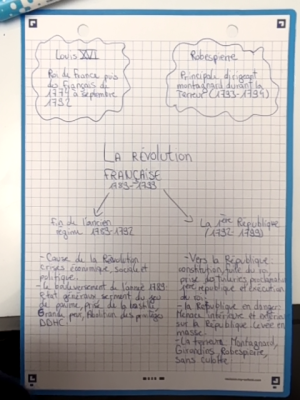 Louis XVI
Roi de France puis
des Français de
1774 à Septembre
1792
Robespierre
Principale dirigeant
montagnard durant la
Terreur (1793-1794)
LA RÉVOLUTION
FRANÇAISE
1789-1799
Fin de l'ancien
régime 1789-1792
La 1ère République
(1792-1799)
- Cause de la Révolution
crises économique, sociale et
politique.
- le bouleversement de l'année 1789:
Etat généraux, serment du jeu
de paume, prise de la bastille,
Grande peur, Abolition des privilèges
DDHC.
- Vers la République
constitution, fuite du roi
prise des Tuileries proclamation
1ère république et Exécution
du roi.
- la République en danger:
Menace intérieure et extérieure
sur la République. Levée en
masse.
- La terreur: Montagnard,
Girondins Robespierre,
Sans Culotte